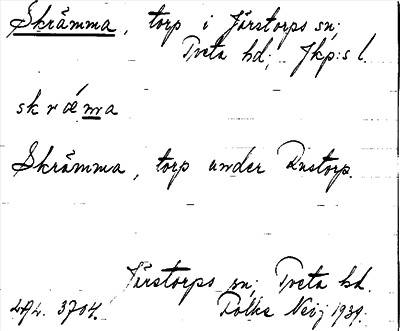 Skråmma, torp i Järstorps sn;
Tveta hd; Jkp:s l.
skrǽma
Skråmma, torp under Rustorp.
Järstorps sn; Tveta hd.
3704. Folke Neij 1939.